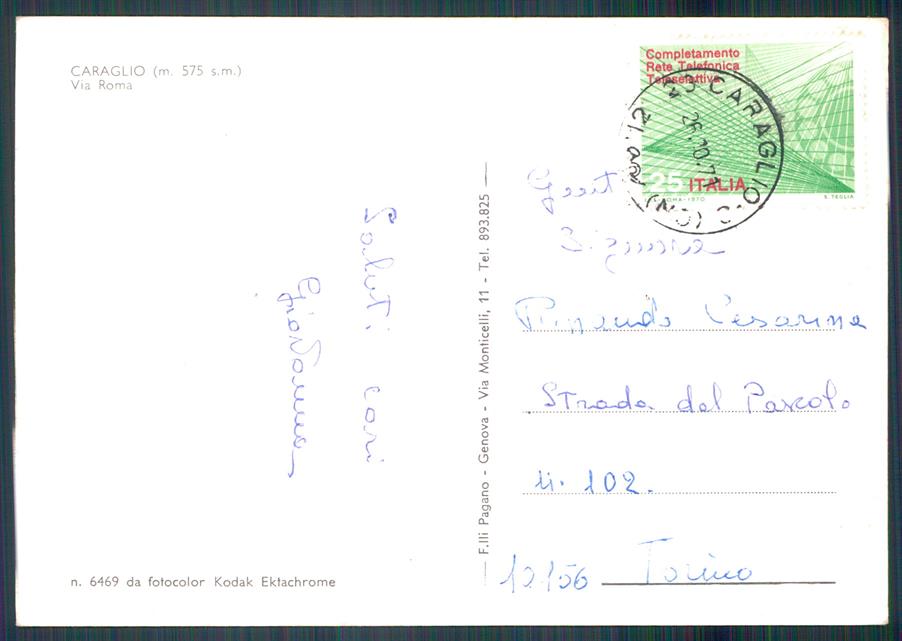 CARAGLIO (m. 575 s.m.)
Via Roma
Saluti cari
Giovanna
n. 6469 da fotocolor Kodak Ektachrome
F.lli Pagano - Genova - Via Monticelli, 11 - Tel. 893.825
Completamento
Rete Telefonica
Teleselettiva
25 ITALIA
ROMA-1970
S. TEGLIA
CARAGLIO (CN)
26.10.71
Gent
Signora
Cesarina
Strada del Pascolo
n. 102.
Torino